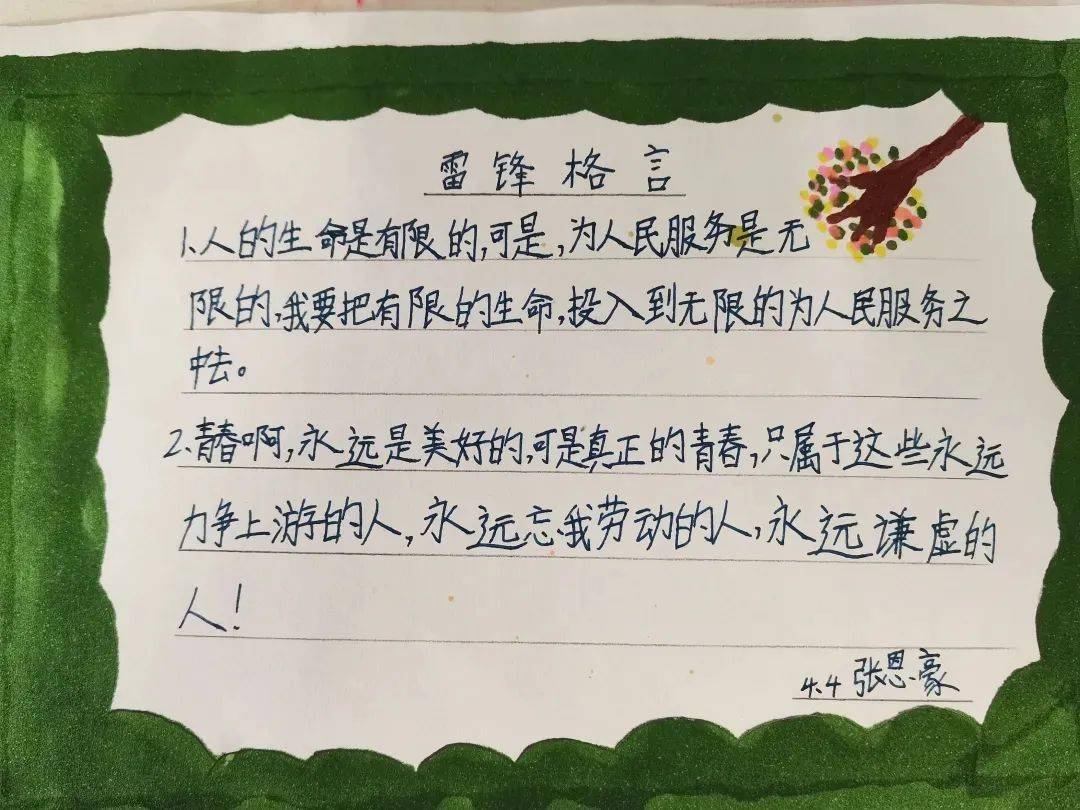 雷锋格言
1.人的生命是有限的,可是,为人民服务是无
限的,我要把有限的生命,投入到无限的为人民服务之
中去。
2.青春啊,永远是美好的,可是真正的青春,只属于这些永远
力争上游的人,永远忘我劳动的人,永远谦虚的
人!
4.4 张恩豪